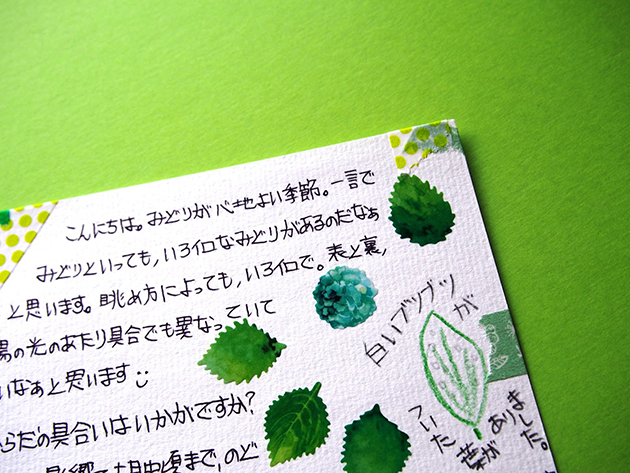 こんにちは。みどりが心地よい季節。一言で
みどりといっても,いろイロなみどりがあるのだなぁ
と思います。眺め方によっても,いろイロで。表と裏,
陽の光のあたり具合でも異なっていて
いなぁと思います
らだの具合いはいかがですか?
影響で十月中頃まで,のど
白いブツブツが
ついた葉が
ありました。